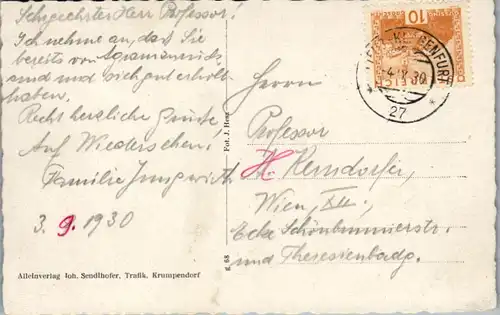 Sehrgeehrter Herr Professor!
Ich nehme an, daß Sie
bereits von
sind und sich gut erholt
haben.
Recht herzliche Grüße,
Auf Wiedersehen,
Familie
3. 9. 1930
Alleinverlag Joh. Sendlhofer, Trafik, Krumpendorf
Fot. J. Herz
g 68
10
KLAGENFURT
27
Herrn
Professor
H. Kerndorfer,
Wien, XII.,
Ecke Schönbrunnerstr.
und Theresienbadg.